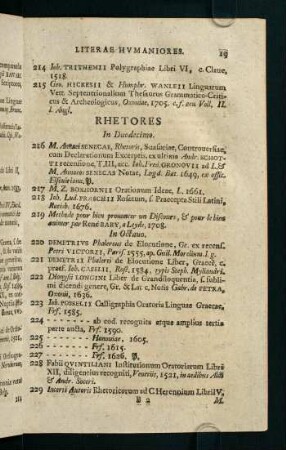 LITERAE HVMANIORES. 19
214 Ioh. TRITHEMII Polygraphiae Libri VI, c. Claue,
1518.
215 Geo. HICKESII & Humphr. WANLEII Linguarum
Vett. Septentrionalium Thesaurus Grammatico-Criti-
cus & Archeologicus, Oxoniae, 1705. c.f. aen Voll. II.
RHETORES
In Duodecimo.
216 M. Annaei SENECAE, Rhetoris, Suasoriae, Controuersiae,
cum Declamationum Excerptis, ex ultima Andr. SCHOT-
TI recensione, T.III, acc. Ioh. Fred. GRONOVII ad L. &
M. Annaeos SENECAS Notae, Lugd. Bat. 1649, ex offic.
Elseuiriana,
217 M. Z. BOXHORNII Orationum Ideae, L. 1661.
218 Ioh. Lud. PRASCHII Rosetum, s. Praecepta Stili Latini,
Ratisb. 1676.
219 Methode pour bien prononcer un Discours, & pour le bien
animer par RENE BARY, a Leyde, 1708.
In Octauo.
220 DEMETRIVS Phalereus de Elocutione, Gr. ex recens.
Petri VICTORII, Paris. 1555, ap. Guil. Morelium l. g.
221 DEMETRII Phalerei de Elocutione Liber, Graece, c.
praef. Ioh. CASELII, Rost. 1584, typis Steph. Myliandri.
222 Dionysii LONGINI Liber de Grandiloquentia, s. subli-
mi dicendi genere, Gr. & Lat. c. Notis Gabr. de PETRA,
Genev., 1636.
223 Ioh. POSSELII Calligraphia Oratoria Linguae Graecae,
Frf. 1585.
224 - - - - - ab eod. recognita atque amplius tertia
parte aucta, Frf. 1590.
225 - - - - - Hanoviae, 1605.
226 - - - - - Frf. 1615.
227 - - - - - Frf. 1626.
228 Fabii QVINTILIANI Institutionum Oratoriarum Libri
XII, diligentius recogniti, Venetiis, 1521, in aedibus Aldi
& Andr. Soceri.
229 Incerti Auctoris Rhetoricorum ad C. Herennium Libri IV,
B 2 M.